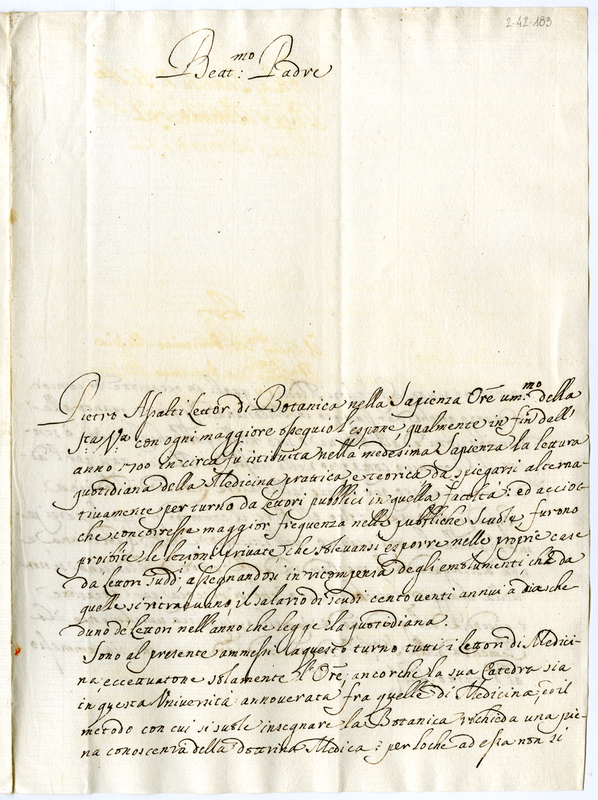 2-42-183
Beat:mo Padre
Pietro Assalti Lettor di Botanica nella Sapienza Ore um:mo della
Sta Va con ogni maggiore ossequio l'espone, qualmente in fin dall'
anno 1700 in circa fù istituita nella medesima Sapienza la lettura
quotidiana della Medicina prattica e teorica da spiegarsi alterna-
tivamente per turno da Lettori pubblici in quella facoltà: ed accioc-
che concorresse maggior frequenza nelle pubbliche Scuole, furono
proibite le lezioni private che solevansi esporre nelle proprie case
da Lettori sudd:i assegnandosi in ricompensa degli emolumenti che da
quelle si ritraevano il salario di scudi cento venti annui à ciasche-
duno de Lettori nell'anno che legge la quotidiana.
Sono al presente ammessi a questo turno tutti i Lettori di Medici-
na, eccettuatone solamente l'Ore, ancorche la sua Catedra sia
in questa Università annoverata fra quelle di Medicina, e il
metodo con cui si suole insegnare la Botanica richieda una pie-
na conoscenza della dottrina Medica: per loche ad essa non si